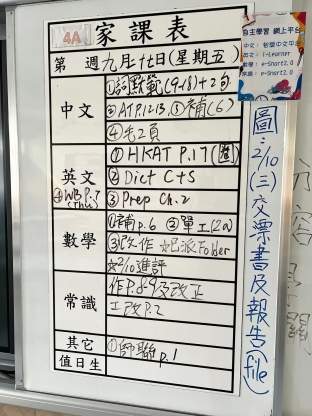 4A 家課表
第 週九月廿七日(星期五)
中文
①詞默範(9-18)+2句
②ATP.12-13 ③補(6)
④毛2頁
英文
④WB P.7
(Thu)
①HKAT P.17(卷)
②Dict C+S
③Prep Ch.2
數學
①補p.6 ②單工(2a)
③改作 ☆已派Folder
☆2/10進評
常識
作P.8-9及改正
工改P.2
其它
①師聯p.1
值日生
自主學習 網上平台
中文:智愛中文平台
英文:i-Learner
數學:e-Smart2.0
常識:e-Smart2.0
圖:2/10(三)交票書及報告(file)